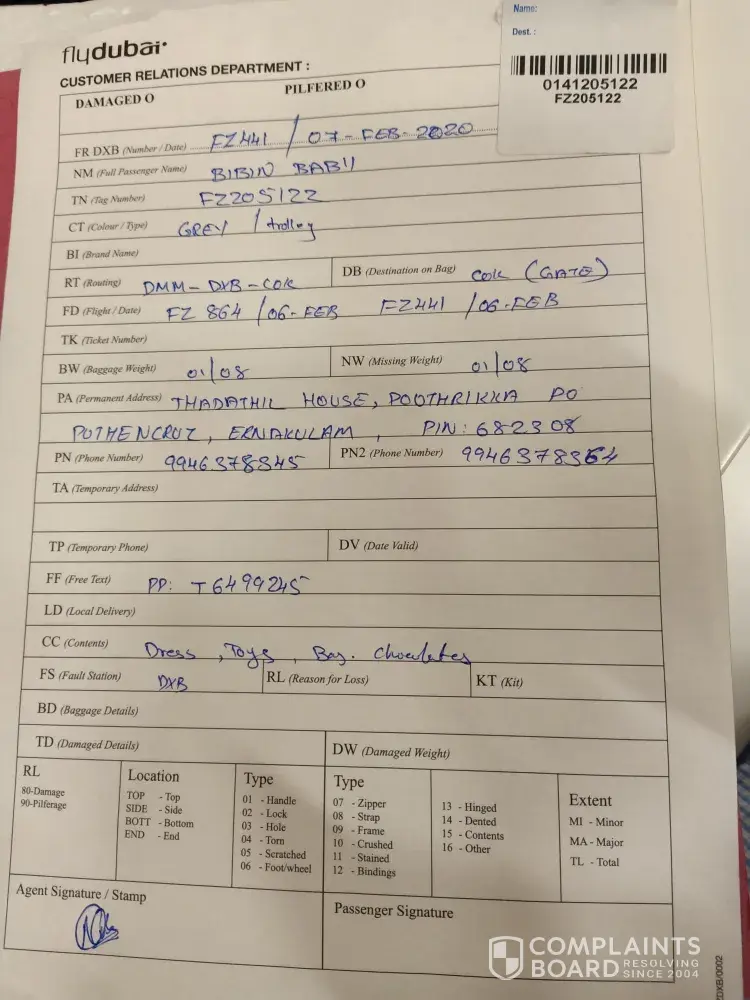 Name:
Dest. :
0141205122
FZ205122
flydubai
CUSTOMER RELATIONS DEPARTMENT :
DAMAGED O PILFERED O
FR DXB (Number / Date) FZ441 / 07-FEB-2020
NM (Full Passenger Name) BIBIN BABU
TN (Tag Number) FZ205122
CT (Colour / Type) GREY / trolley
BI (Brand Name)
RT (Routing) DMM-DXB-COK DB (Destination on Bag) COK (GATE)
FD (Flight / Date) FZ 864 /06-FEB FZ441 /06-FEB
TK (Ticket Number)
BW (Baggage Weight) 01/08 NW (Missing Weight) 01/08
PA (Permanent Address) THADATHIL HOUSE, POOTHRIKKA PO
POTHENCRUZ, ERNAKULAM, PIN: 682308
PN (Phone Number) 9946378345 PN2 (Phone Number) 9946378364
TA (Temporary Address)
TP (Temporary Phone) DV (Date Valid)
FF (Free Text) PP: T6499245
LD (Local Delivery)
CC (Contents) Dress, Toys, Bag. Chocolates
FS (Fault Station) DXB RL (Reason for Loss) KT (Kit)
BD (Baggage Details)
TD (Damaged Details) DW (Damaged Weight)
RL
80-Damage
90-Pilferage
Location
TOP - Top
SIDE - Side
BOTT - Bottom
END - End
Type
01 - Handle
02 - Lock
03 - Hole
04 - Torn
05 - Scratched
06 - Foot/wheel
Type
07 - Zipper
08 - Strap
09 - Frame
10 - Crushed
11 - Stained
12 - Bindings
13 - Hinged
14 - Dented
15 - Contents
16 - Other
Extent
MI - Minor
MA - Major
TL - Total
Agent Signature / Stamp Passenger Signature
COMPLAINTS
BOARD RESOLVING
SINCE 2004
DXB/0002